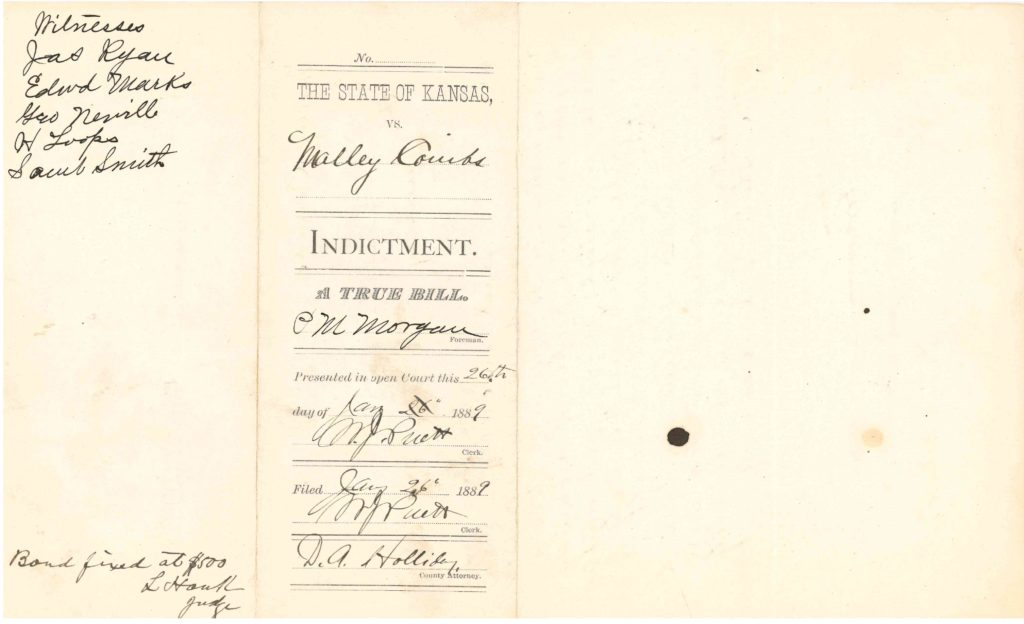 Witnesses
Jas Ryan
Edwd Marks
Geo Nevill
H Loops
Saml Smith
Bond fixed at $500
L Houk
Judge
No.
THE STATE OF KANSAS,
VS.
Malley Combs
INDICTMENT.
A TRUE BILL.
C M Morgan
Foreman.
Presented in open Court this 26th
day of Jany 26" 1889
W.J. Puett
Clerk.
Filed Jany 26" 1889
W J Puett
Clerk.
D.A. Holliday,
County Attorney.